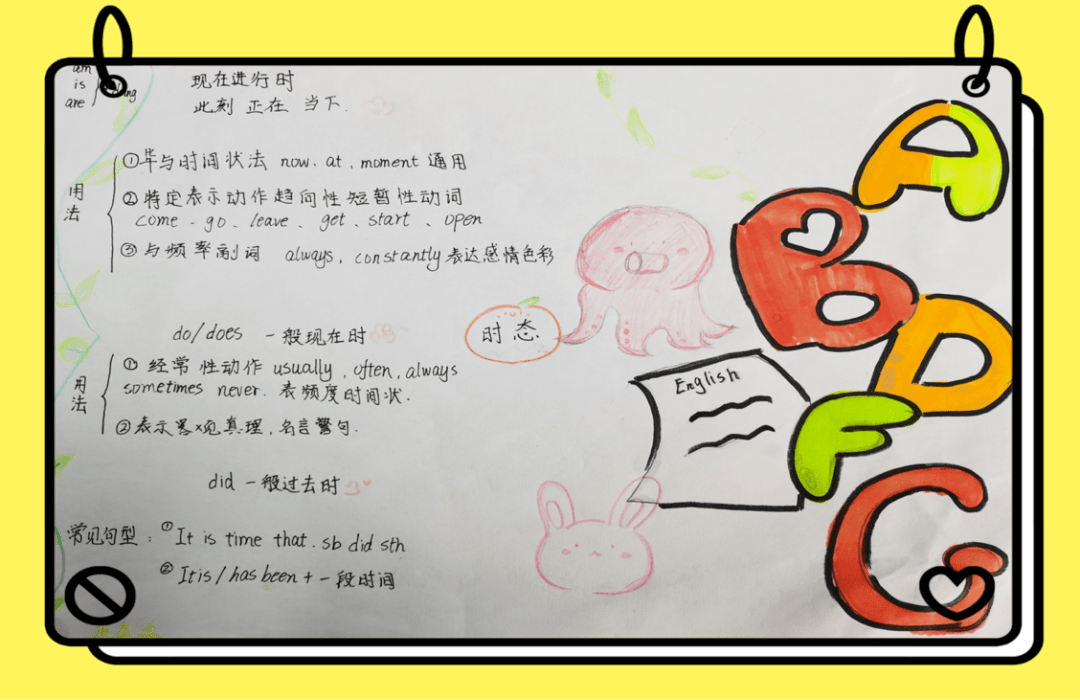 am
is
are
现在进行时
此刻 正在 当下.
用法
①毕与时间状法 now. at. moment 通用
②特定表示动作趋向性短暂性动词
come . go、leave、get、start、open
③与频率副词 always, constantly表达感情色彩
时态
do/does 一般现在时
用法
①经常性动作 usually, often, always
sometimes never. 表频度时间状.
②表示客观真理, 名言警句.
English
did 一般过去时
常见句型:①It is time that. sb did sth
②It is / has been + 一段时间
A
B
D
F
G